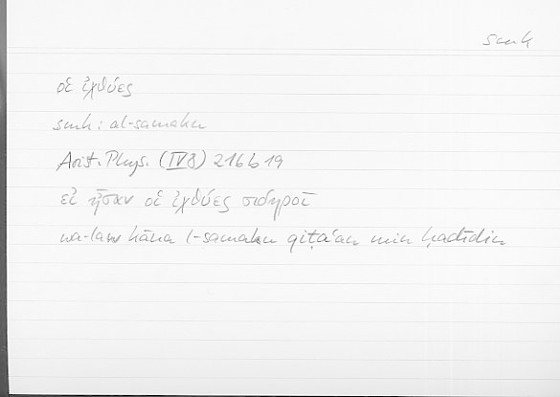 smk
οἱ ἰχθύες
smk: al-samaku
Arist. Phys. (IV 8) 216 b 19
εἰ ἦσαν οἱ ἰχθύες σιδηροῖ
wa-law kāna l-samaku qiṭaʿan min ḥadīdin